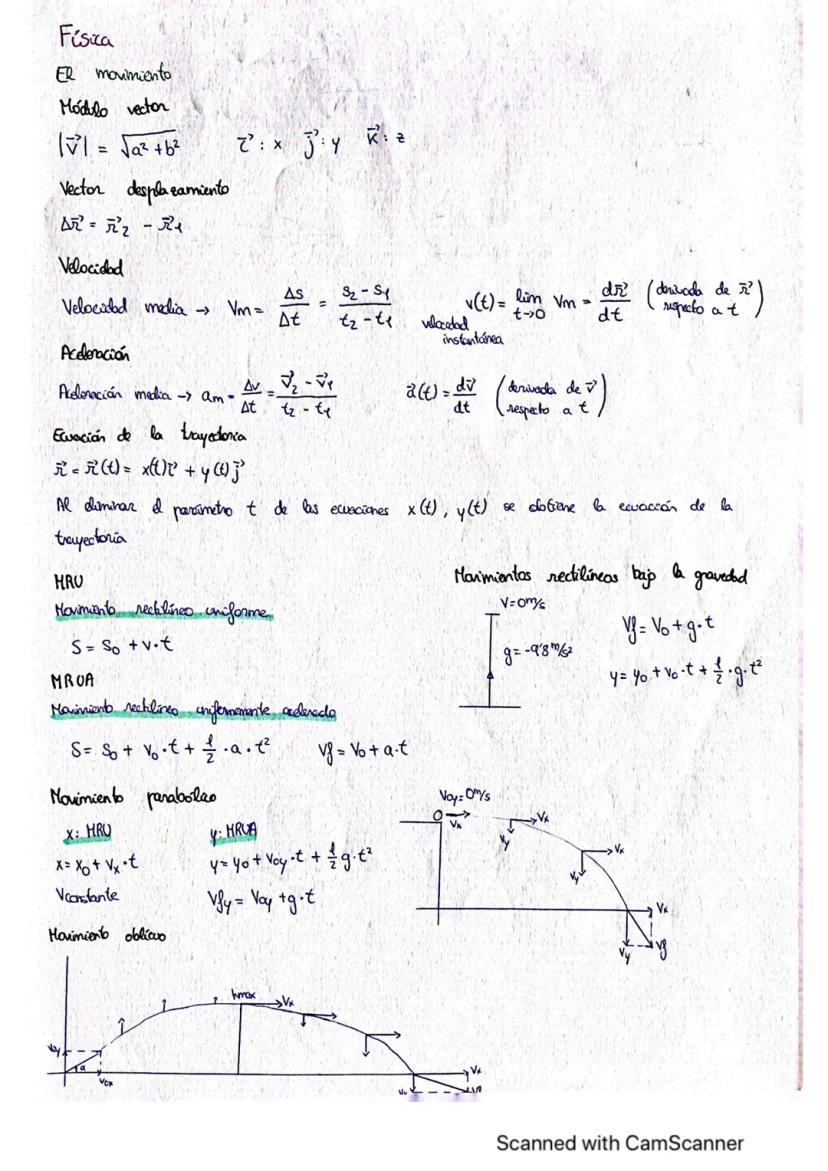 Física
El movimiento
Módulo vector
|v⃗| = √a² + b²   i⃗ : x   j⃗ : y   k⃗ : z
Vector desplazamiento
Δr⃗ = r⃗₂ - r⃗₁
Velocidad
Velocidad media → Vm = Δs/Δt = (s₂ - s₁)/(t₂ - t₁)   v(t) = lim t→0 Vm = dr⃗/dt (derivada de r⃗ respecto a t)
velocidad instantánea
Aceleración
Aceleración media → am = Δv/Δt = (v⃗₂ - v⃗₁)/(t₂ - t₁)   a⃗(t) = dv⃗/dt (derivada de v⃗ respecto a t)
Ecuación de la trayectoria
r⃗ = r⃗(t) = x(t)i⃗ + y(t)j⃗
Al eliminar el parámetro t de las ecuaciones x(t), y(t) se obtiene la ecuacción de la
trayectoria
MRU
Movimiento rectilíneo uniforme
S = S₀ + v·t
MRUA
Movimiento rectilíneo uniformemente acelerado
S = S₀ + V₀·t + 1/2·a·t²   Vf = V₀ + a·t
Movimientos rectilíneos bajo la gravedad
V=0m/s
g=-9'8m/s²
Vf = V₀ + g·t
y = y₀ + V₀·t + 1/2·g·t²
Movimiento parabólico
x: MRU   y: MRUA
x = x₀ + Vx·t   y = y₀ + V₀y·t + 1/2 g·t²
Vconstante   Vfy = V₀y + g·t
V₀y = 0m/s
Vx
Vx
Vy
Vx
Vy
Vx
Vy
Vf
Movimiento oblicuo
hmax
Vx
V₀y
α
V₀x
Vx